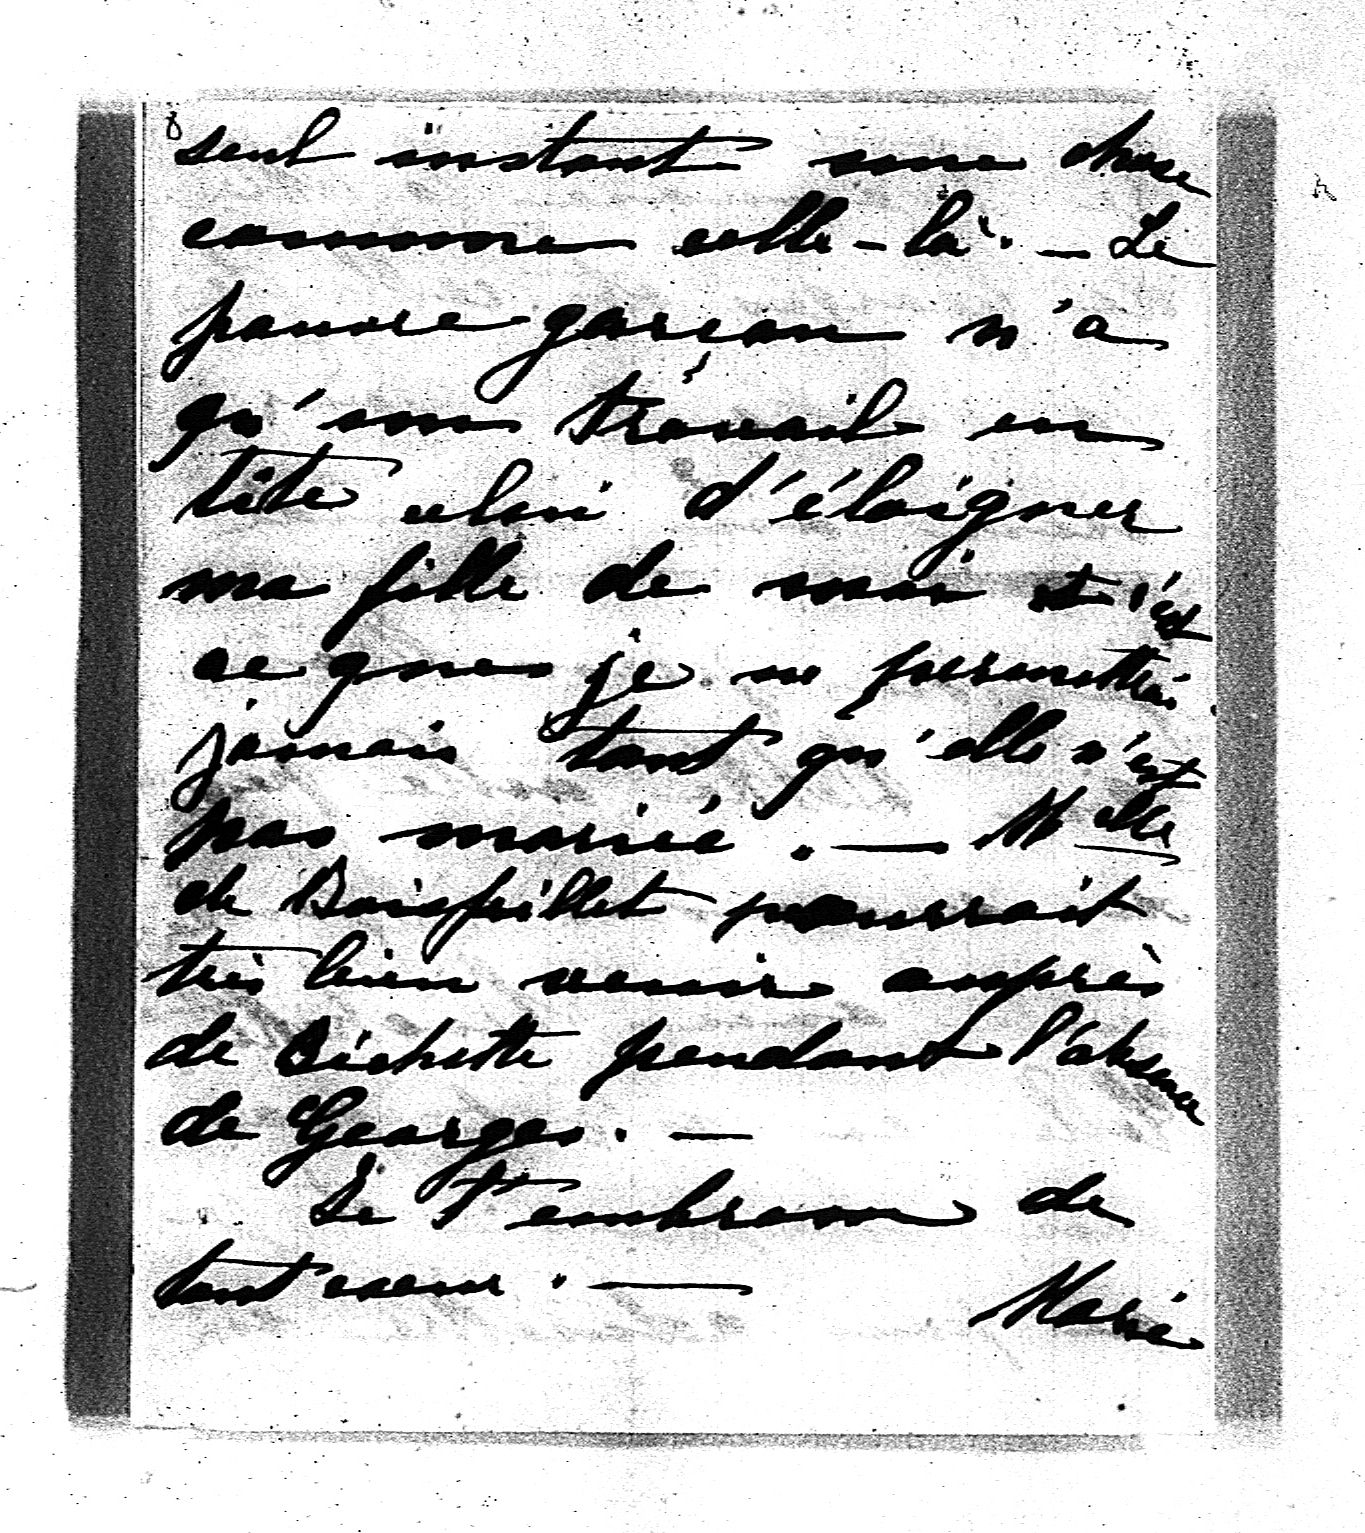 8
seul instant une chose
comme celle-là. — Le
pauvre garçon n'a
qu'un travail en
tête celui d'éloigner
ma fille de moi et c'est
ce que je ne permettrai
jamais tant qu'elle n'est
pas mariée. — Melle
de Boisfeillet pourrait
très bien venir auprès
de Bichette pendant l'absence
de Georges. —
Je t'embrasse de
tout coeur. —
Marie